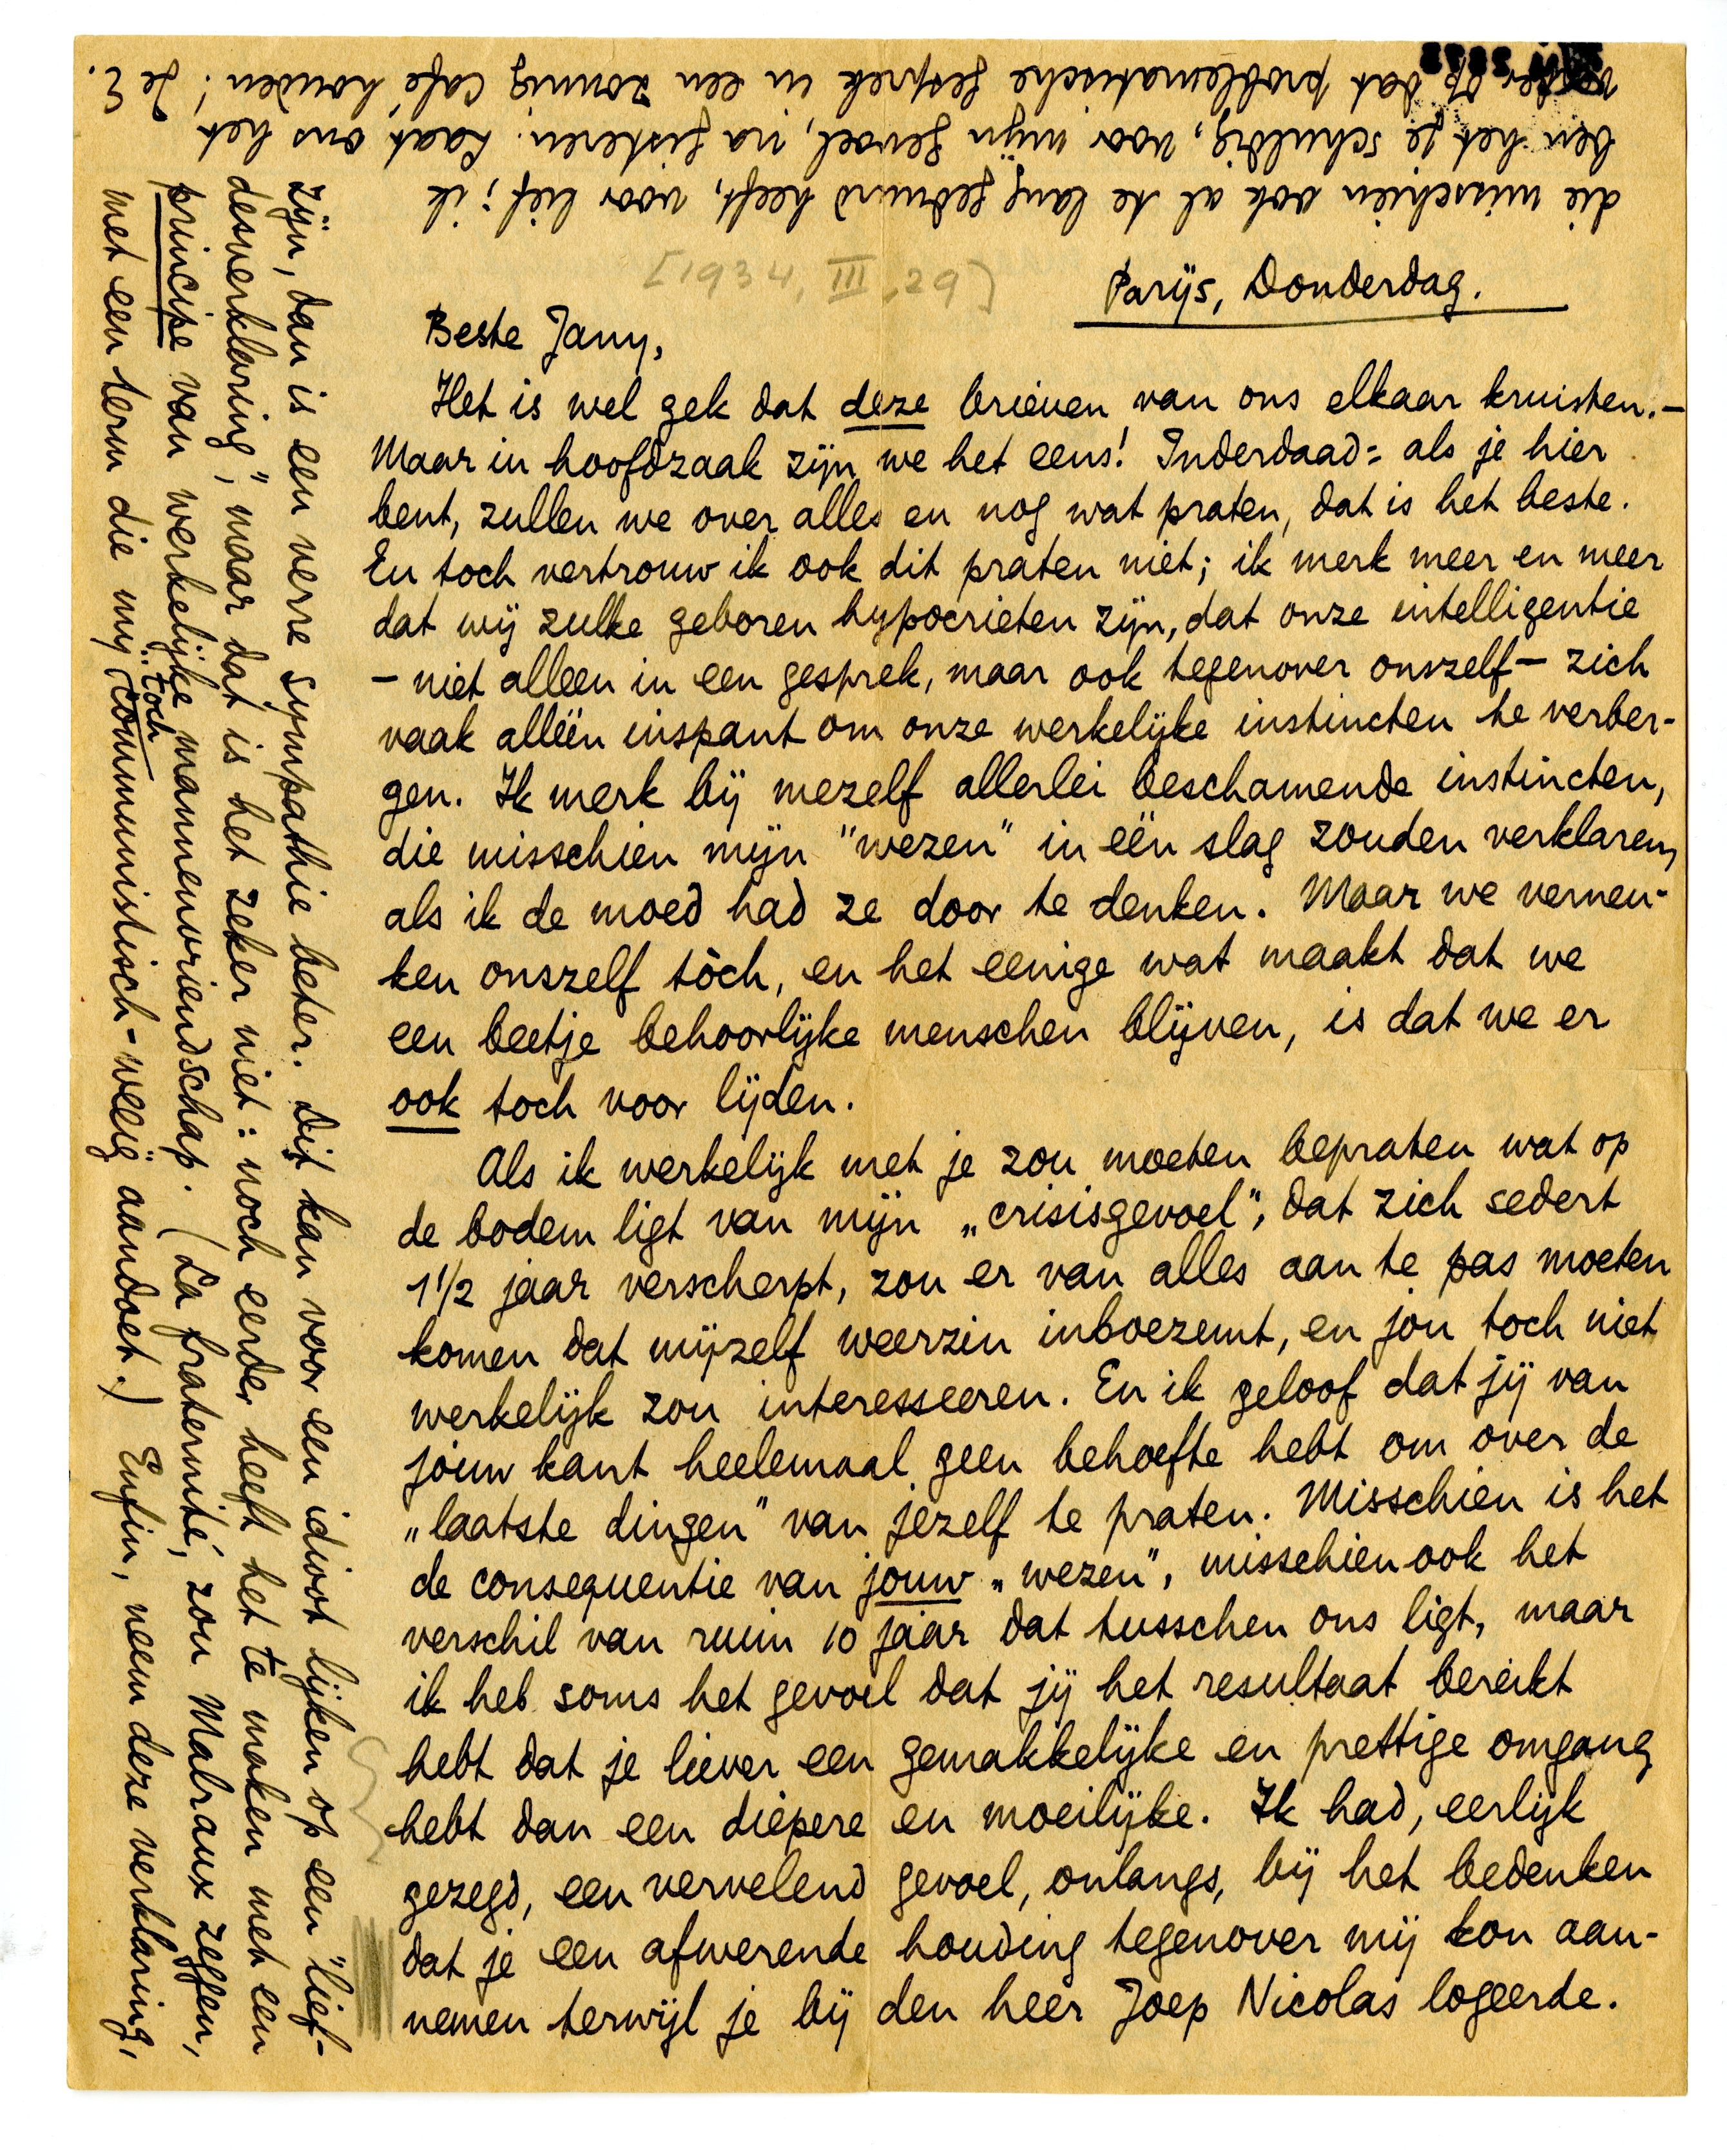 [1934, III, 29]
Parijs, Donderdag.
Beste Jany,
Het is wel gek dat deze brieven van ons elkaar kruisten.—
Maar in hoofdzaak zijn we het eens! Inderdaad: als je hier
bent, zullen we over alles en nog wat praten, dat is het beste.
En toch vertrouw ik ook dit praten niet; ik merk meer en meer
dat wij zulke geboren hypocrieten zijn, dat onze intelligentie
— niet alleen in een gesprek, maar ook tegenover onszelf — zich
vaak alléén inspant om onze werkelijke instincten te verber-
gen. Ik merk bij mezelf allerlei beschamende instincten,
die misschien mijn "wezen" in één slag zouden verklaren,
als ik de moed had ze door te denken. Maar we verneu-
ken onszelf tòch, en het eenige wat maakt dat we
een beetje behoorlijke menschen blijven, is dat we er
ook toch voor lijden.
Als ik werkelijk met je zou moeten bepraten wat op
de bodem ligt van mijn „crisisgevoel", dat zich sedert
1 1/2 jaar verscherpt, zou er van alles aan te pas moeten
komen dat mijzelf weerzin inboezemt, en jou toch niet
werkelijk zou interesseeren. En ik geloof dat jij van
jouw kant heelemaal geen behoefte hebt om over de
„laatste dingen" van jezelf te praten. Misschien is het
de consequentie van jouw „wezen", misschien ook het
verschil van ruim 10 jaar dat tusschen ons ligt, maar
ik heb soms het gevoel dat jij het resultaat bereikt
hebt dat je liever een gemakkelijke en prettige omgang
hebt dan een diepere en moeilijke. Ik had, eerlijk
gezegd, een vervelend gevoel, onlangs, bij het bedenken
dat je een afwerende houding tegenover mij kon aan-
nemen terwijl je bij den heer Joep Nicolas logeerde.
zijn, dan is een verre sympathie beter. Dit kan voor een idioot lijken op een "lief-
desverklaring", maar dat is het zeker niet: noch eerder heeft het te maken met een
principe van werkelijke mannenvriendschap. (La fraternité, zou Malraux zeggen,
met een term die mij toch communistisch-weeïg aandoet.) Enfin, neem deze verklaring,
die misschien ook al te lang geduurd heeft, voor lief; ik
ben het je schuldig, voor mijn gevoel, na gisteren. Laat ons het
verder op dat problematische gesprek in een zonnig café houden! Je E.